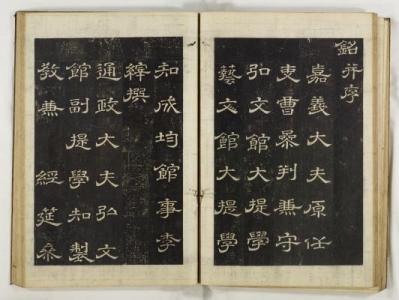 銘并序
嘉義大夫原任
吏曹叅判兼守
弘文館大提學
藝文館大提學
知成均館事李
縡撰
通政大夫弘文
館副提學知製
敎兼經筵叅